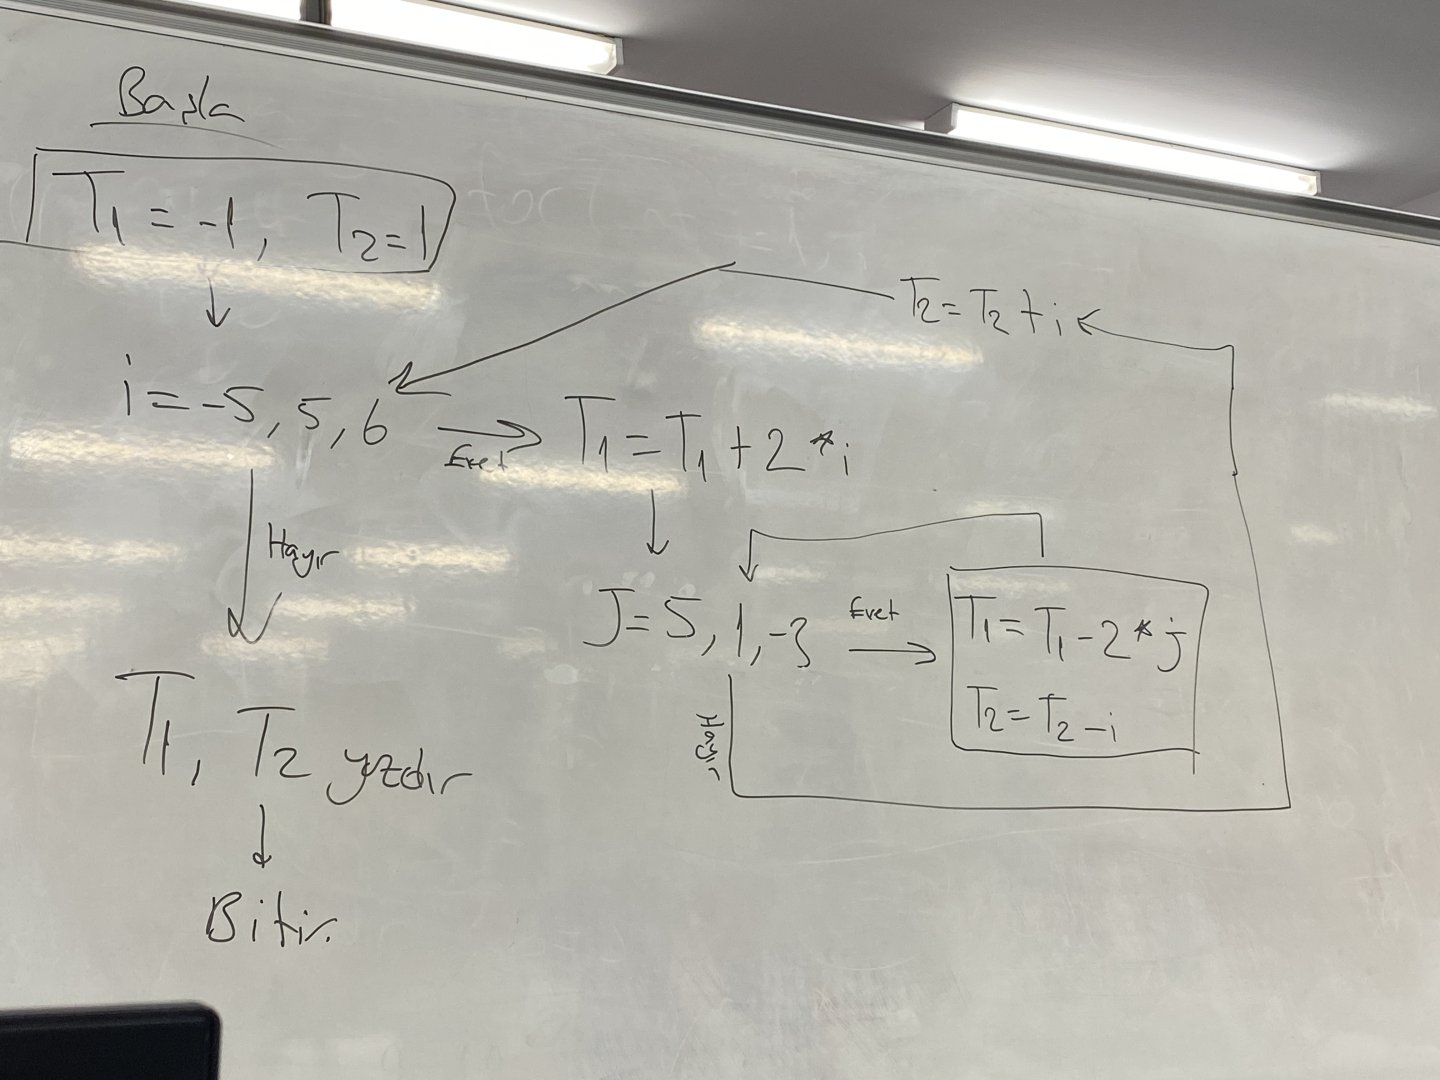 Başla
T1 = -1, T2 = 1
T2 = T2 + i
i = -5, 5, 6
Evet
T1 = T1 + 2 * i
Hayır
J = 5, 1, -3
Evet
T1 = T1 - 2 * j
T2 = T2 - i
Hayır
T1, T2 yzdır
Bitir.